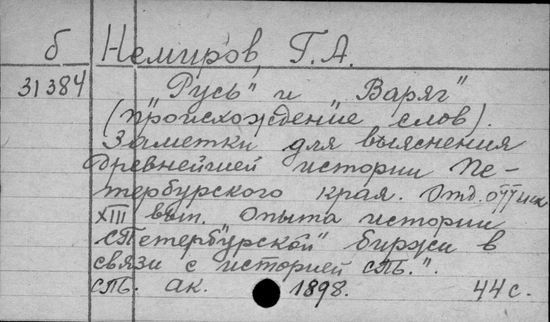 б Немиров, Г. А.
31384 "Русь" и "Варяг"
(происхождение слов).
Заметки для выяснения
древнейшей истории Пе-
тербургского края. Отд. оттиск
XIII вып. "Опыта истории
С.Петербургской" биржи в
связи с историей СПб.".
СПб. ак. 1898. 44 с.